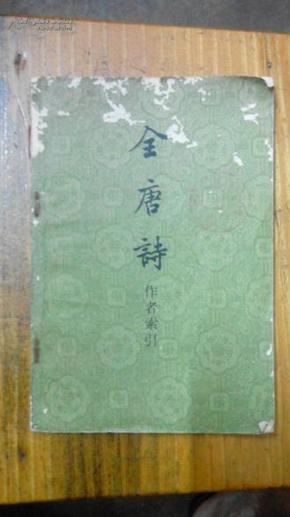 全唐詩
作者索引